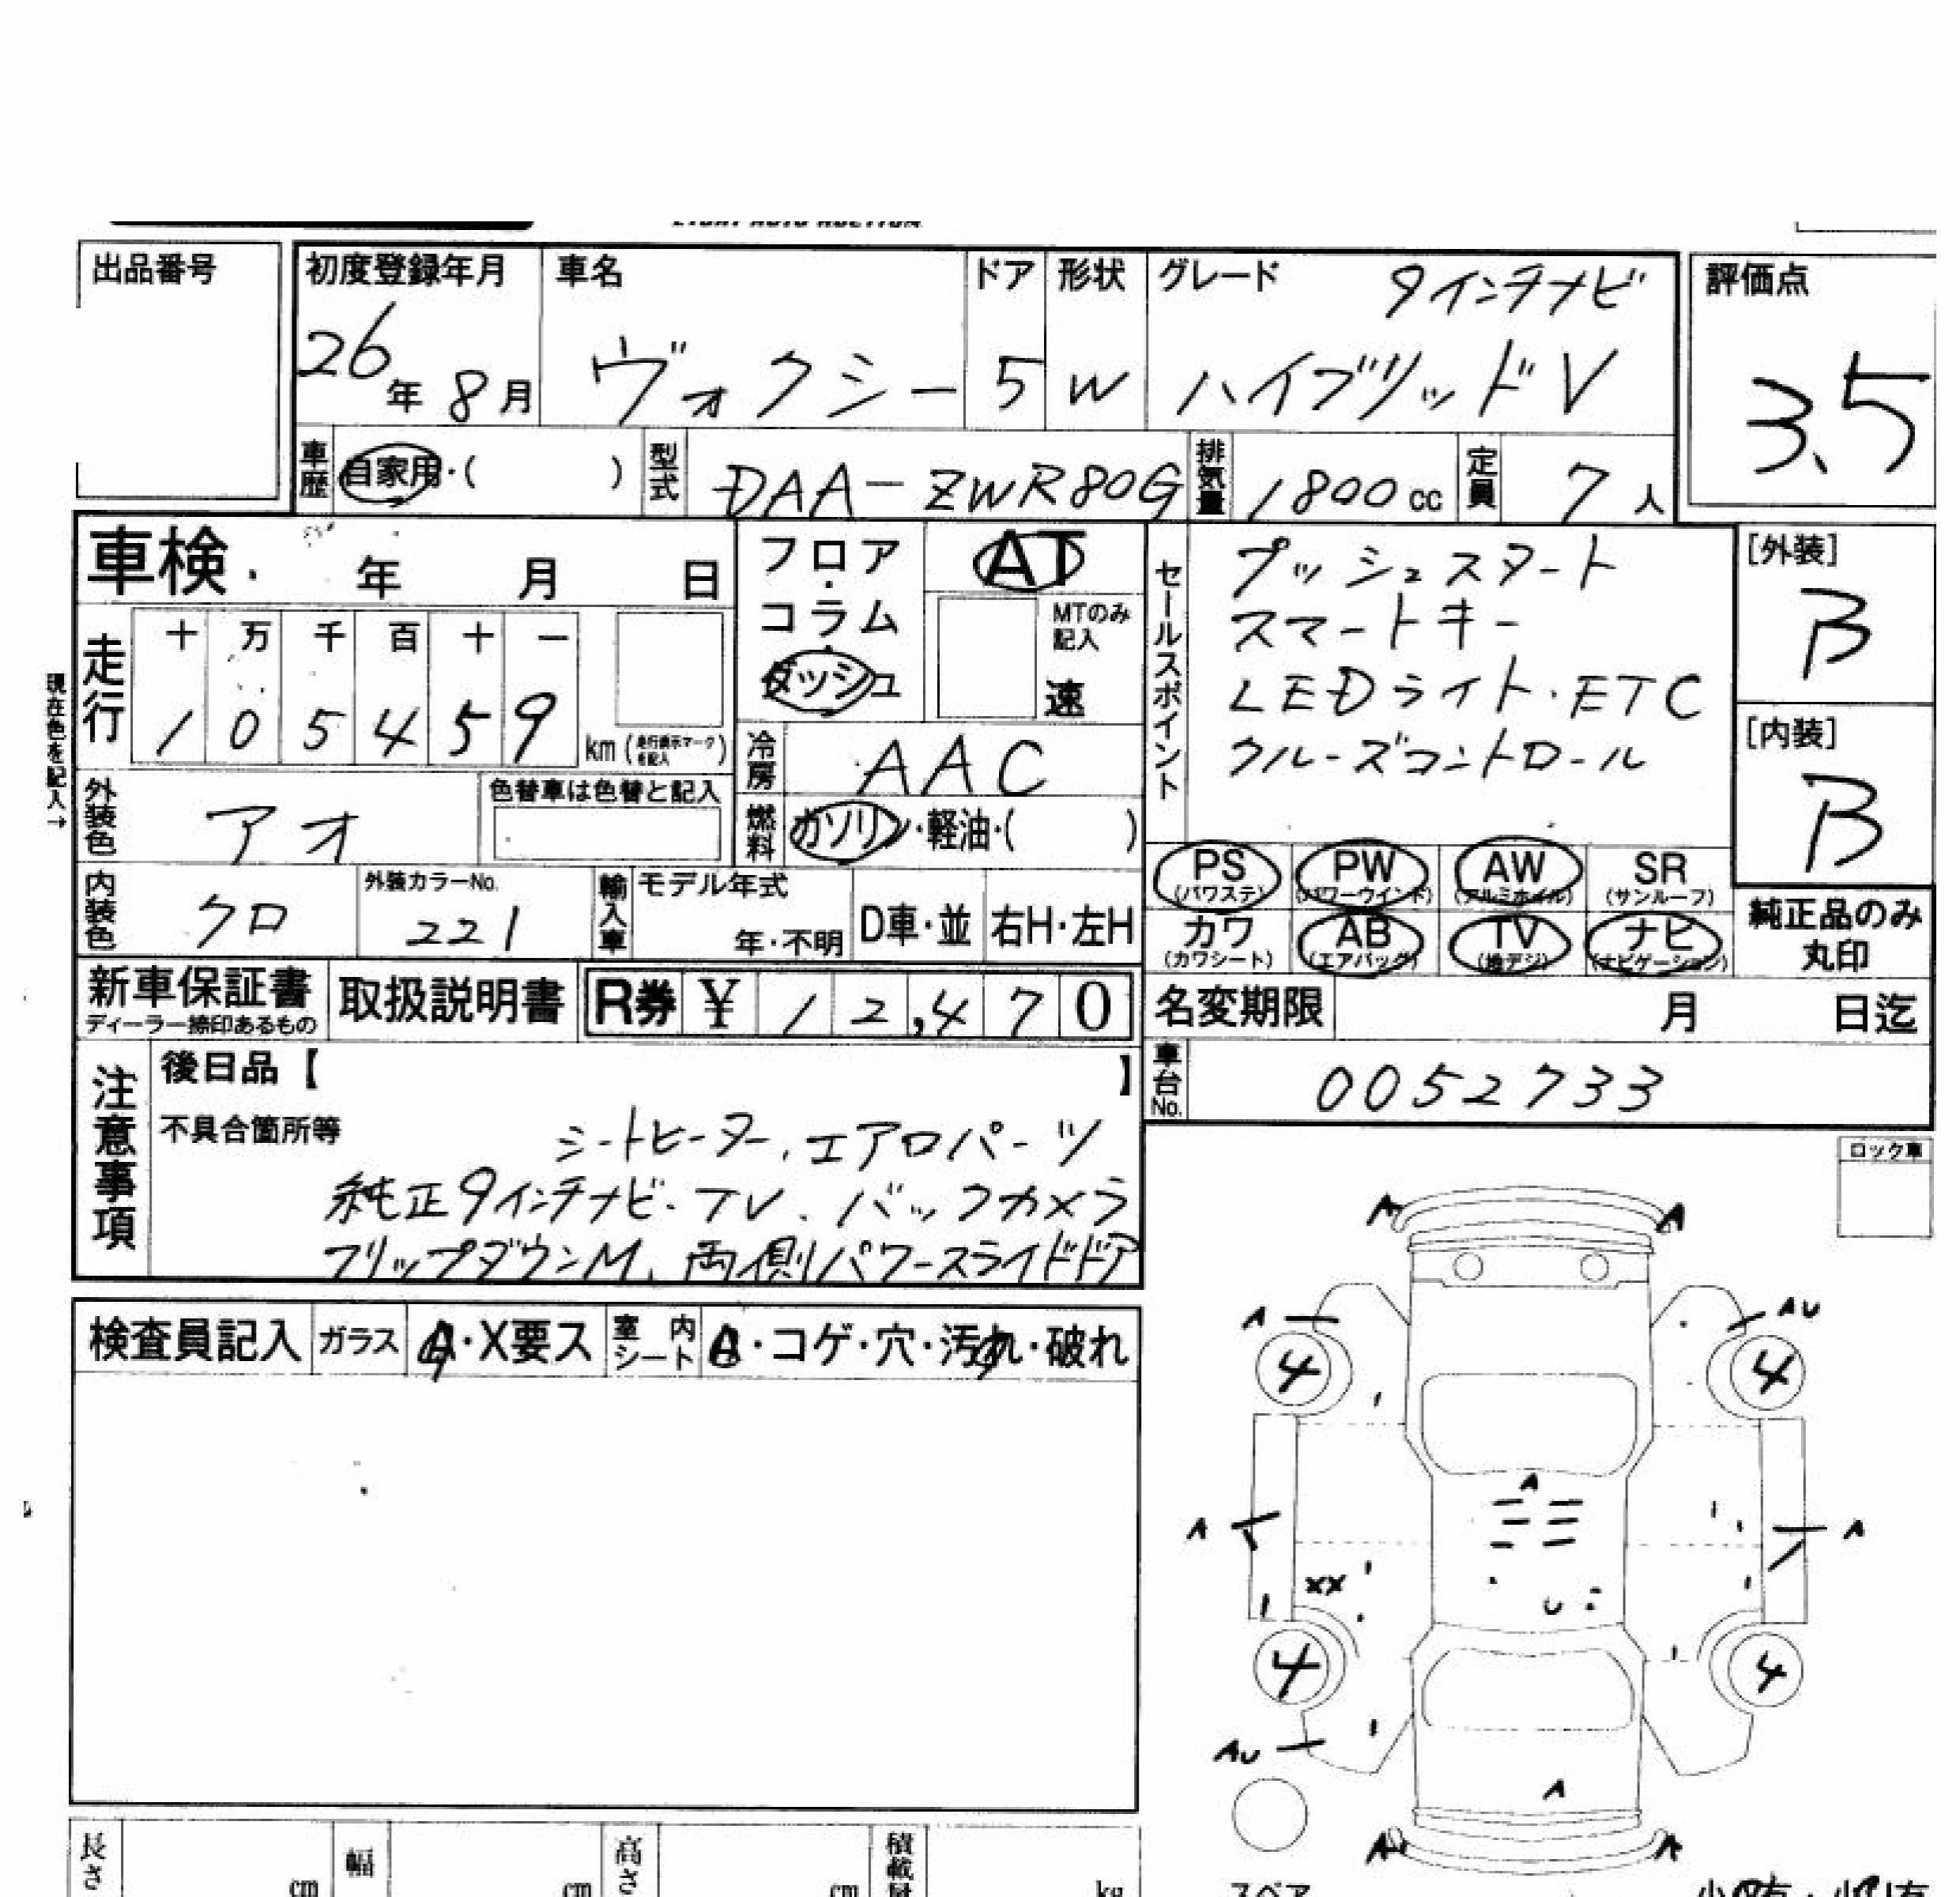 出品番号
初度登録年月
26年 8月
車名
ヴォクシー
ドア
5
形状
W
グレード
9インチナビ
ハイブリッドV
評価点
3.5
車歴
自家用・( )
型式
DAA-ZWR80G
排気量
1800 cc
定員
7人
車検 年 月 日
現在色を記入→
走行
十 万 千 百 十 一
1 0 5 4 5 9
km (走行表示マークを記入)
フロア・コラム・ダッシュ
AT
MTのみ記入
速
冷房
AAC
燃料
ガソリン・軽油・( )
外装色
アオ
色替車は色替と記入
内装色
クロ
外装カラーNo.
221
輸入車
モデル年式
年・不明
D車・並
右H・左H
セールスポイント
プッシュスタート
スマートキー
LEDライト・ETC
クルーズコントロール
[外装]
B
[内装]
B
PS (パワステ)
PW (パワーウインド)
AW (アルミホイル)
SR (サンルーフ)
カワ (カワシート)
AB (エアバッグ)
TV (地デジ)
ナビ (ナビゲーション)
純正品のみ丸印
新車保証書
ディーラー捺印あるもの
取扱説明書
R券 ¥ 12,470
名変期限 月 日迄
車台No.
0052733
注意事項
後日品【 】
不具合箇所等
シートヒーター、エアロパーツ
純正9インチナビ・TV、バックカメラ
フリップダウンM、両側パワースライドドア
ロック車
検査員記入
ガラス
A・X要ス
室内シート
・コゲ・穴・汚れ・破れ
A A
A AU
4 4
A
A A
XX
U
4 4
AU
A
A A
スペア
長さ cm
幅 cm
高さ cm
積載量 kg